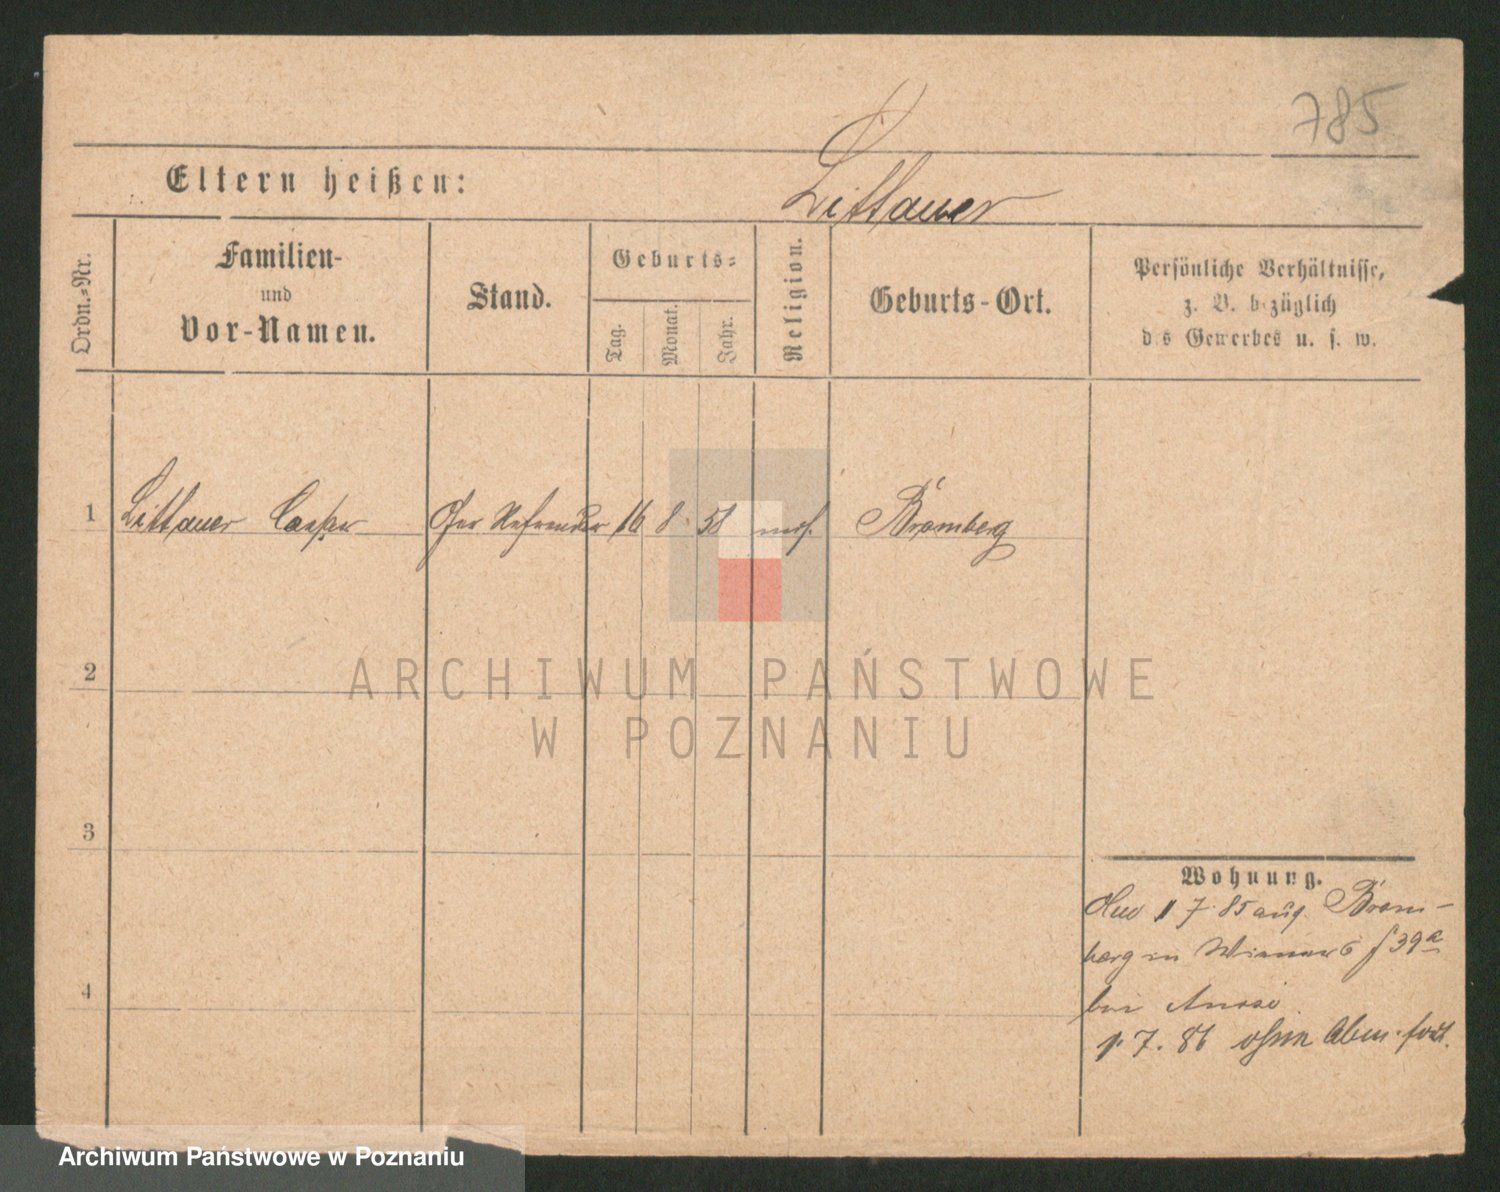 785
Eltern heißen: Littauer
Ordn.-Nr.
Familien- und Vor-Namen.
Stand.
Geburts-
Tag.
Monat.
Jahr.
Religion.
Geburts-Ort.
Persönliche Verhältnisse,
z. B. bezüglich
des Gewerbes u. s. w.
1 Littauer Casper Ger Referendar 16 8 58 mos. Bromberg
2
3
4
ARCHIWUM PAŃSTWOWE
W POZNANIU
Wohnung.
1 7. 85 aus Brom-
berg in 6 39a
bei
1. 7. 86 ohne Abm. fort.
Archiwum Państwowe w Poznaniu